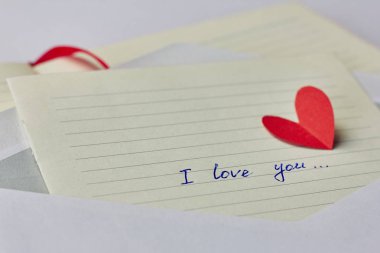 I love you...